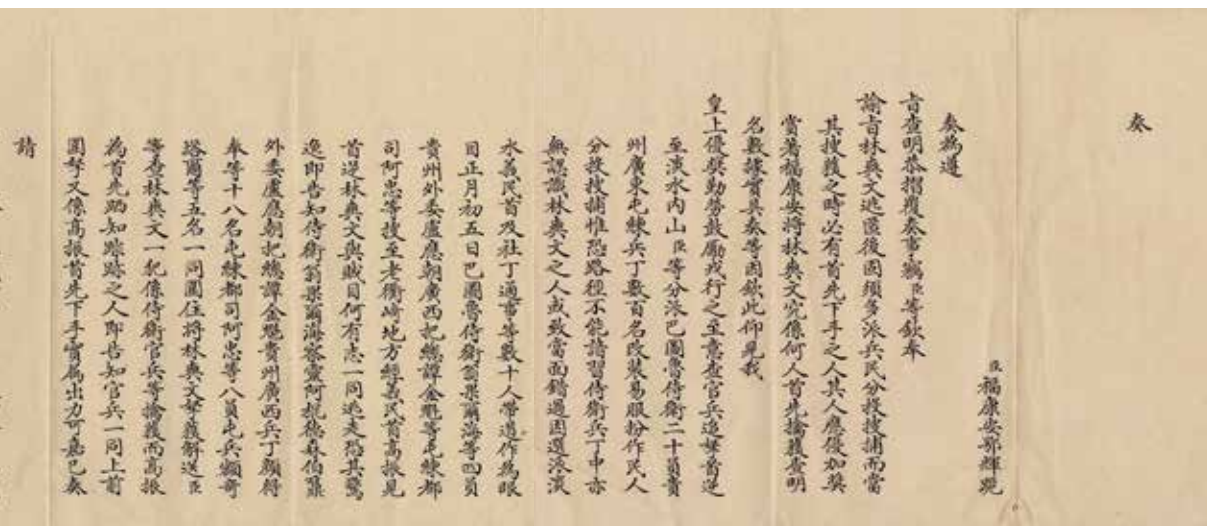 奏
臣福康安鄂輝跪
奏為遵
旨查明恭摺覆奏事竊臣等欽奉
諭旨林爽文逃匿後因須多派兵民分投搜捕而當
其搜獲之時必有首先下手之人其人應優加獎
賞著福康安將林爽文究係何人首先擒獲查明
名數據實具奏等因欽此仰見我
皇上優獎勤勞鼓勵戎行之至意查官兵追拏首逆
至淡水內山臣等分派巴圖魯侍衛二十員貴
州廣東屯練兵丁數百名改裝易服扮作民人
分投搜捕惟恐路徑不能諳習侍衛兵丁中亦
無認識林爽文之人或致當面錯過因選派淡
水義民首及社丁通事等數十人帶作為眼
目正月初五日巴圖魯侍衛翁果爾海等四員
貴州外委盧應朝廣西把總譚金魁等屯練都
司阿忠等搜至老衢崎地方經義民首高振見
首逆林爽文與賊目何有志一同逃走恐其驚
逸即告知侍衛翁果爾海容靈阿杭德森伯
外委盧應朝把總譚金魁貴州廣西兵丁顏得
奉等十八名屯練都司阿忠等八員屯兵額哥
塔爾等五名一同圍住將林爽文拏獲解送臣
等查林爽文一犯係侍衛官兵等擒獲而高振
為首先跴知踪跡之人即告知官兵一同上前
圍拏又係高振首先下手實屬出力可嘉已奏
請